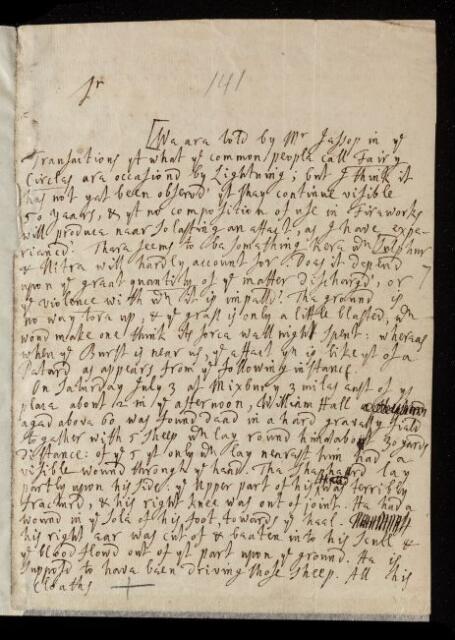 141
Sr
[We are told by Mr Jessop in ye
Transactions yt what ye common people call Fairy
Circles are occasiond by Lightning; but I think it
has not yet been observd yt they continue visible
50 years, & yt no composition of use in Fireworks
will produce near so lasting an effect, as I have expe-
rienced. There seems to be something here wch Sulphur
& Nitre will hardly account for. Does it depend
upon ye great quantity of ye matter discharged, or
ye violence with wch it is impelld? The ground is
no way tore up, & ye grass is only a little blasted, wch
woud make one think its force well nigh spent: whereas
when ye Burst is near us, ye effect yn is like yt of a
Petard as appears from ye following instance.
On Saturday July 3 at Mixbury 3 miles east of ys
place about 2 in ye afternoon, William Hall
aged above 60 was found dead in a hard gravelly field
together with 5 sheep wch lay round him about 30 yards
distance: of ye 5 yt only wch lay nearest him had a
visible wound through ye head. The Shepherd lay
partly upon his side. ye upper part of his head was terribly
fracturd, & his right knee was out of joint. He had a
wound in ye sole of his foot, towards ye heel.
his right ear was cut of & beaten into his scull &
ye blood flowd out of yt part upon ye ground. He is
supposd to have been driving those sheep. All his
cloaths